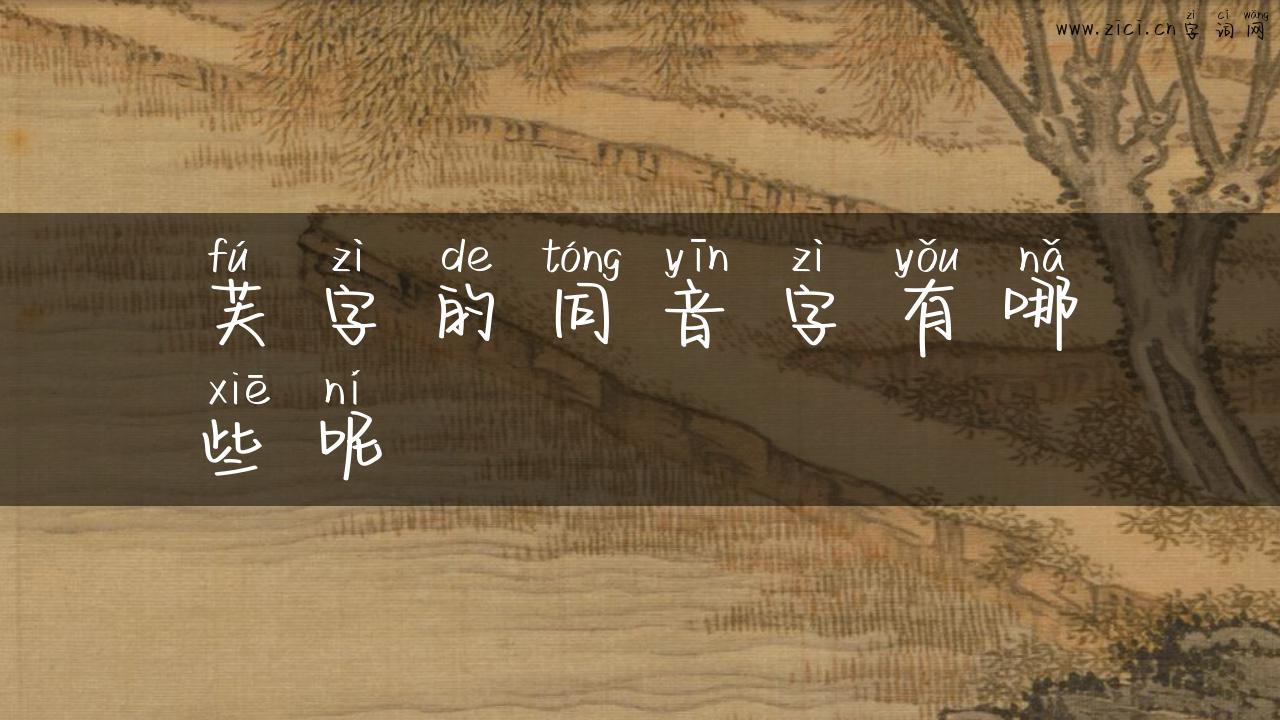 zì cí wǎng
www.zici.cn 字 词 网
fú zì de tóng yīn zì yǒu nǎ
芙 字 的 同 音 字 有 哪
xiē ní
些 呢